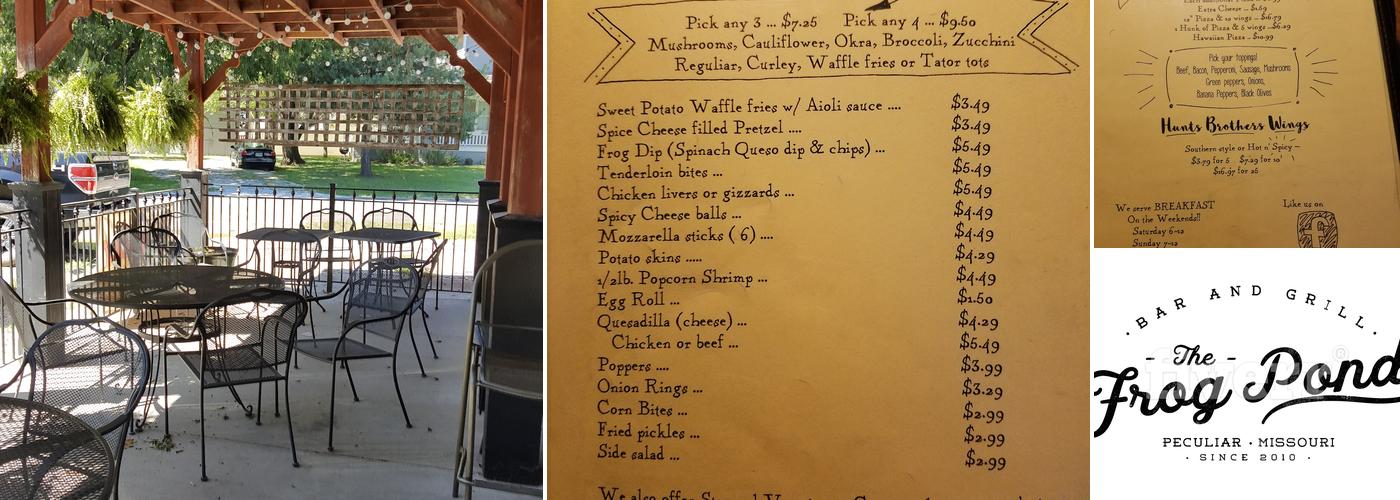 Pick any 3 ... $7.25 Pick any 4 ... $9.50
Mushrooms, Cauliflower, Okra, Broccoli, Zucchini
Reguliar, Curley, Waffle fries or Tator tots
Sweet Potato Waffle fries w/ Aioli sauce .... $3.49
Spice Cheese filled Pretzel .... $3.49
Frog Dip (Spinach Queso dip & chips) ... $5.49
Tenderloin bites ... $5.49
Chicken livers or gizzards ... $5.49
Spicy Cheese balls ... $4.49
Mozzarella sticks ( 6) .... $4.49
Potato skins ..... $4.29
1/2lb. Popcorn Shrimp ... $4.49
Egg Roll ... $1.50
Quesadilla (cheese) ... $4.29
Chicken or beef ... $5.49
Poppers .... $3.99
Onion Rings ... $3.29
Corn Bites ... $2.99
Fried pickles ... $2.99
Side salad ... $2.99
We also offer
Extra Cheese - $1.69
12" Pizza & 10 wings - $16.79
1 Hunk of Pizza & 5 wings - $6.29
Hawaiian Pizza - $10.99
Pick your toppings!
Beef, Bacon, Pepperoni, Sausage, Mushrooms
Green peppers, Onions,
Banana Peppers, Black Olives
Hunts Brothers Wings
Southern style or Hot n' Spicy -
$3.79 for 5 $7.29 for 10
$16.97 for 25
We serve BREAKFAST
On the Weekends!!
Saturday 6-12
Sunday 7-12
Like us on
f
• BAR AND GRILL •
- The -
Frog Pond
PECULIAR • MISSOURI
• SINCE 2010 •